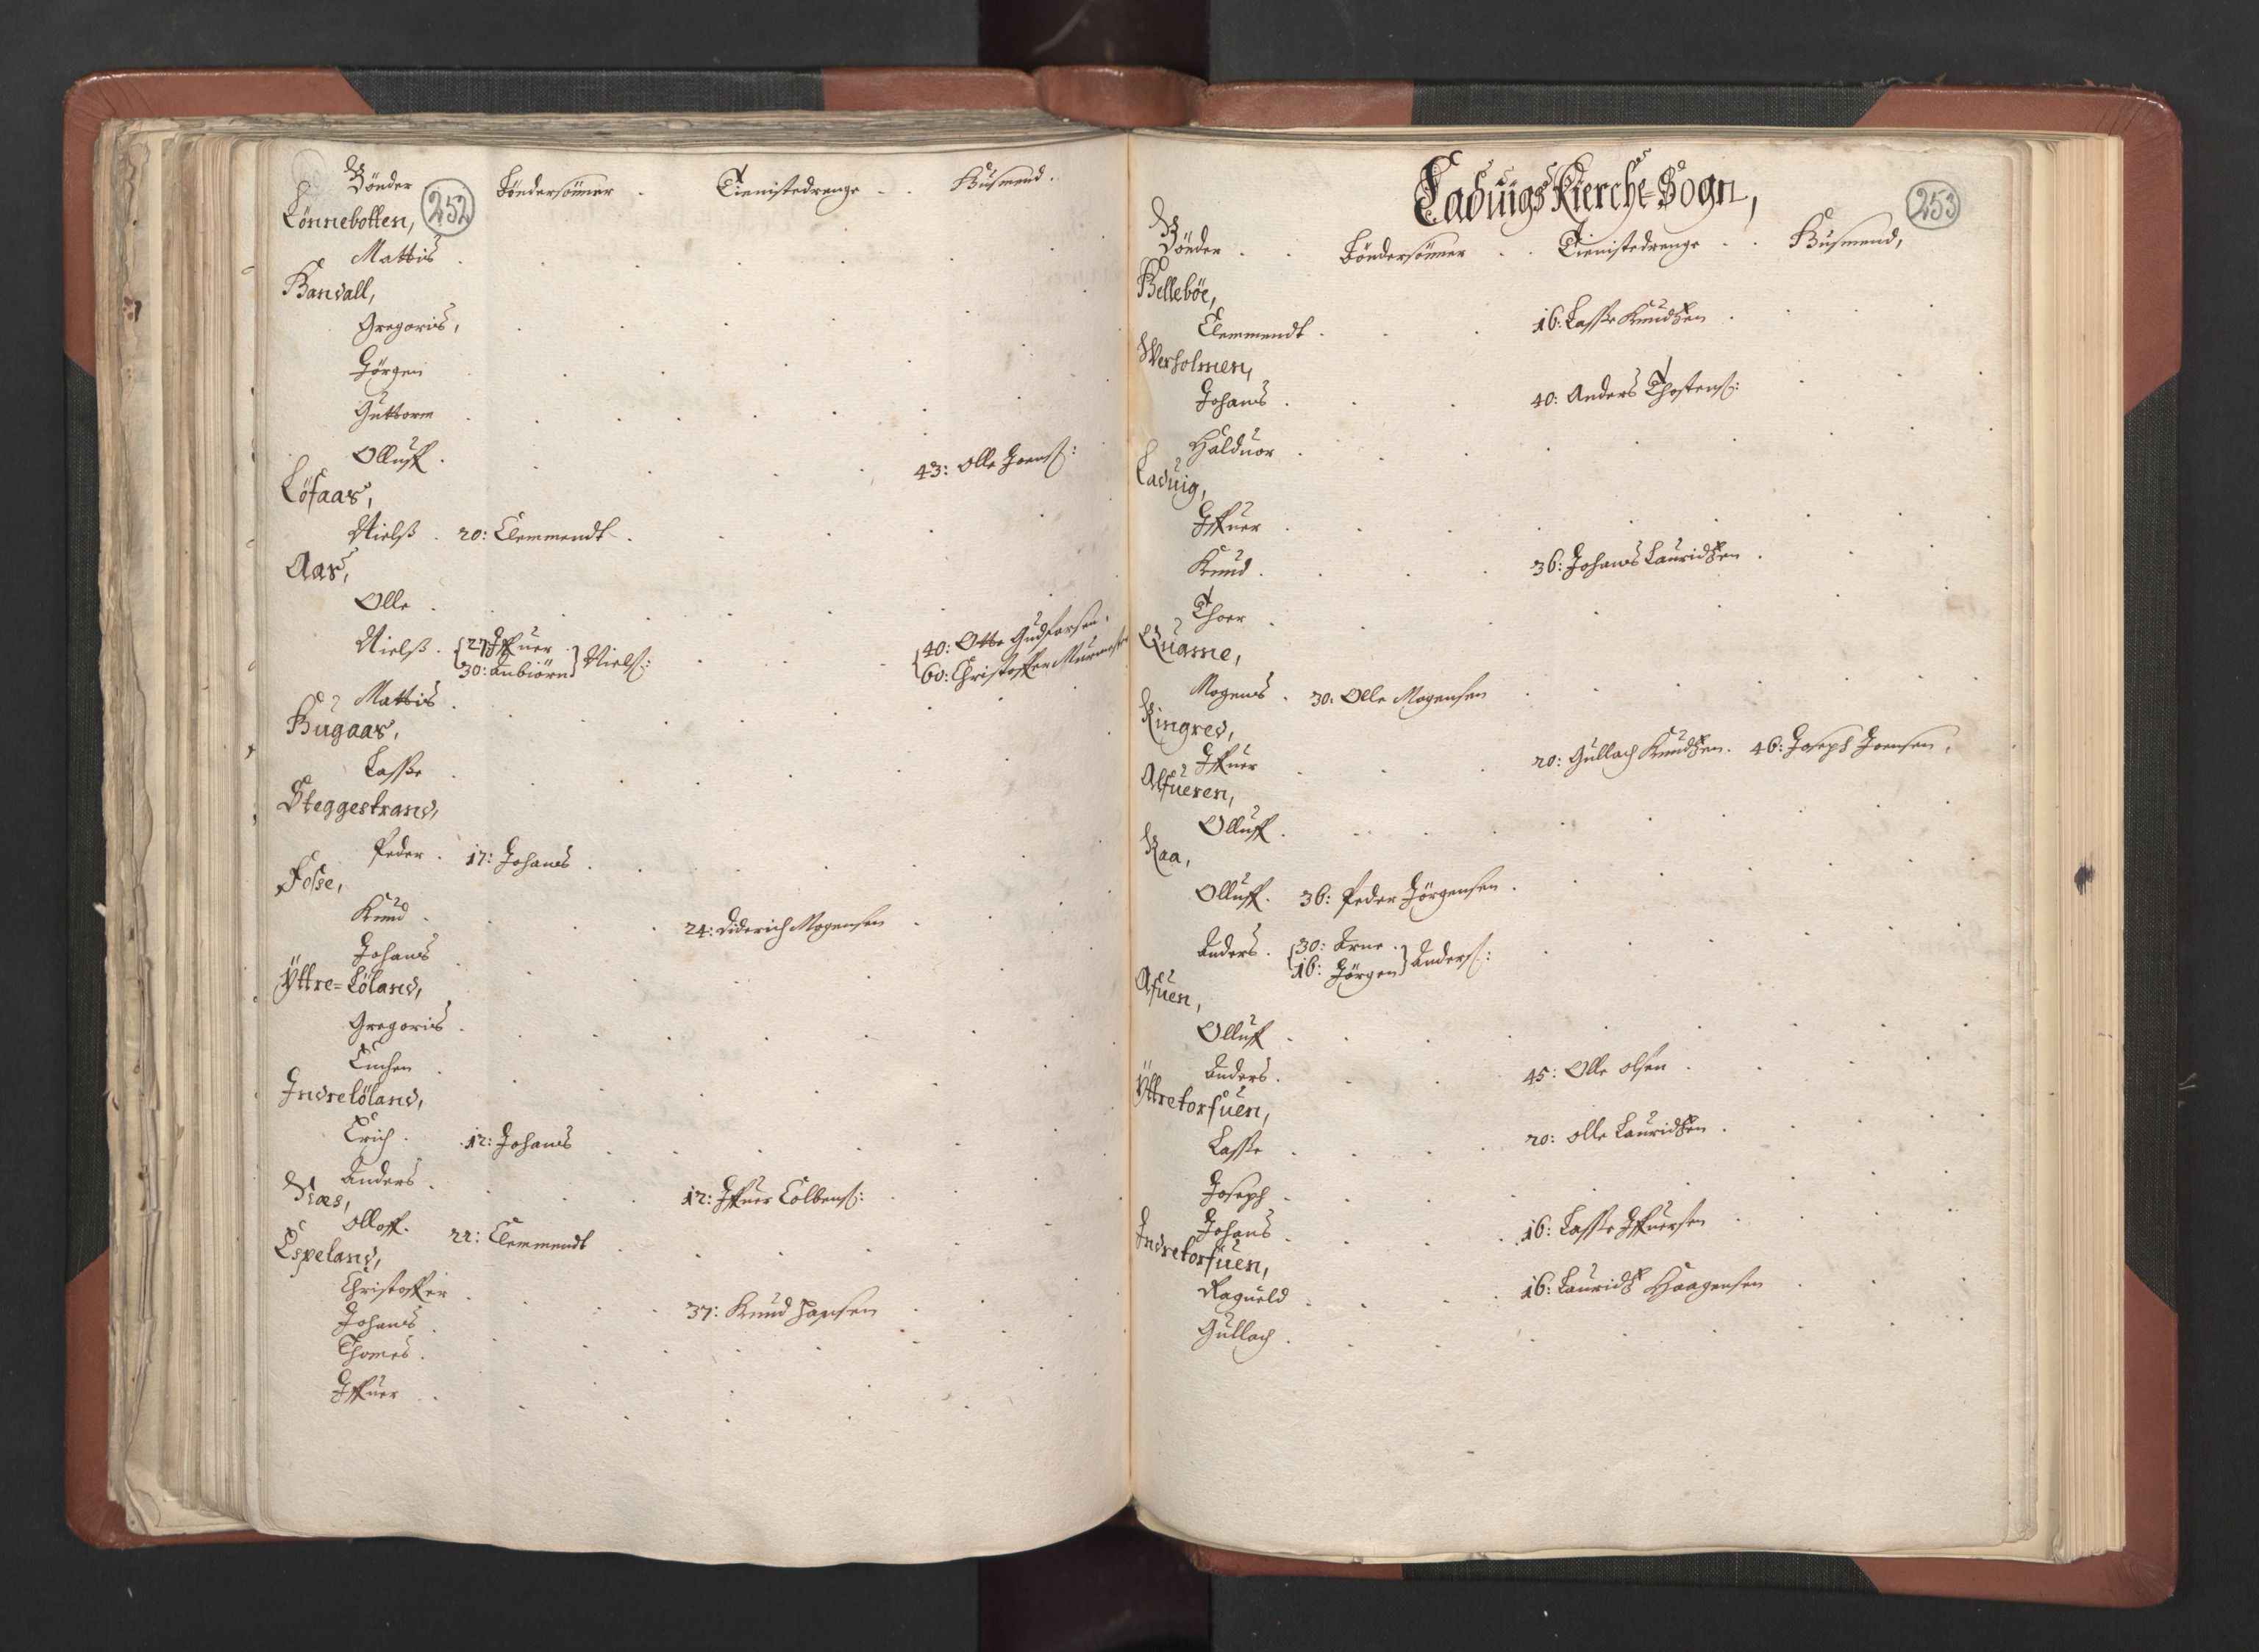 Bönder . Böndersönner . Tienistedrenge . . Husmend .
252
Lönnebotten,
Mattis .
Randall,
Gregoris,
Jörgen
Guttorm .
Olluff . 43: Olle Joens:
Löfaas,
Nielß . 20: Clemmendt .
Aas,
Olle .
Nielß . {27 Iffuer . 30: anbiörn} Niels: {40: Otte Gudforsen . 60: Christoffer Murmester
Mattis .
Hugaas,
Lasse .
Steggestrand,
Peder . 17: Johans .
Fosse,
Knud . 24: Diderich Mogensen .
Johans .
Yttre=Löland,
Gregoris .
Luchen .
Indrelöland,
Erich . 12: Johans .
Anders . 12: Iffuer Colbens:
Næs,
Olloff . 22: Clemmendt .
Espeland,
Christoffer .
Johans . 37: Knud Hansen .
Thomes .
Iffuer .
Laduigs Kierche=Sogn,
253
Bönder . . Böndersönner . . Tienistedrenge . . Husmend,
Bellebøe,
Clemmendt . 16: Lasse Knudsen .
Werholmen,
Johans . 40: Anders Thostens:
Halduor .
Laduig,
Iffuer .
Knud . 36: Johans Lauridsen .
Thoer .
Quame,
Mogens . 30: Olle Mogensen
Ringred,
Iffuer . 20: Gullach Knudsen . 46: Joseph Joensen,
Alfueren,
Olluff .
Raa,
Olluff . 36: Peder Jörgensen .
Anders . {30: Arne . 16: Jörgen} Anders:
Afuen,
Olluff .
Anders . 45: Olle olsen .
Yttretorfuen,
Lasse . 20: Olle Lauridsen .
Joseph .
Johans . 16: Lasse Iffuersen
Indretorfuen,
Ragueld . 16: Lauridtz Haagensen
Gullach .